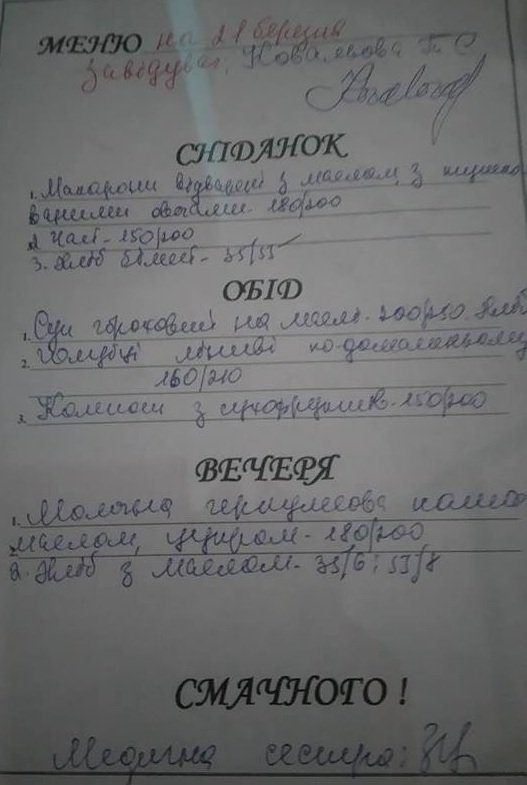 МЕНЮ на 21 березня
Завідувач. Ковальова Т С
СНІДАНОК
1. Макарони відварені з маслом, з кишено
ваними овочами - 180/200
2. Чай - 150/200
3. Хліб білий - 35/55
ОБІД
1. Суп гороховий на маслі - 200/250. Хліб
2. Голубці ліниві по-домашньому
160/210
3. Компот з сухофруктів - 150/200
ВЕЧЕРЯ
1. Молочна геркулесова каша
маслом, цукром - 180/200
2. Хліб з маслом - 35/6; 55/8
СМАЧНОГО !
Медична сестра: